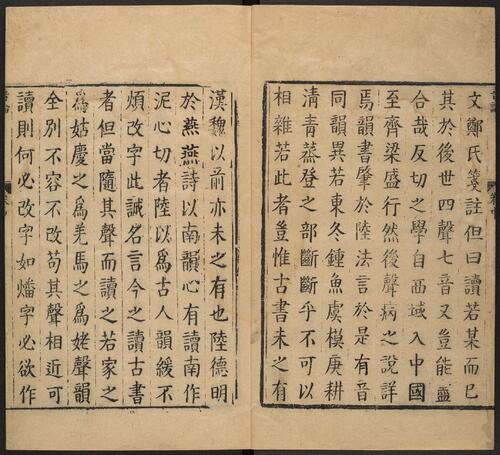 文鄭氏箋註但曰讀若某而已
其於後世四聲七音又豈能盡
合哉反切之學自西域入中國
至齊梁盛行然後聲病之說詳
焉韻書肇於陸法言於是有音
同韻異若東冬鍾魚虞模庚耕
清青蒸登之部斷斷乎不可以
相雜若此者豈惟古書未之有
漢魏以前亦未之有也陸德明
於燕燕詩以南韻心有讀南作
泥心切者陸以爲古人韻緩不
煩改字此誠名言今之讀古書
者但當隨其聲而讀之若家之
爲姑慶之爲羌馬之爲姥聲韻
全別不容不改苟其聲相近可
讀則何必改字如燔字必欲作